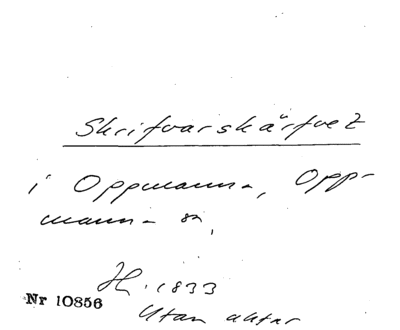 Skrifvarskärfvet
i Oppmanna, Opp-
manna sn,
H. 1833
Nr 10856
Utan aktnr